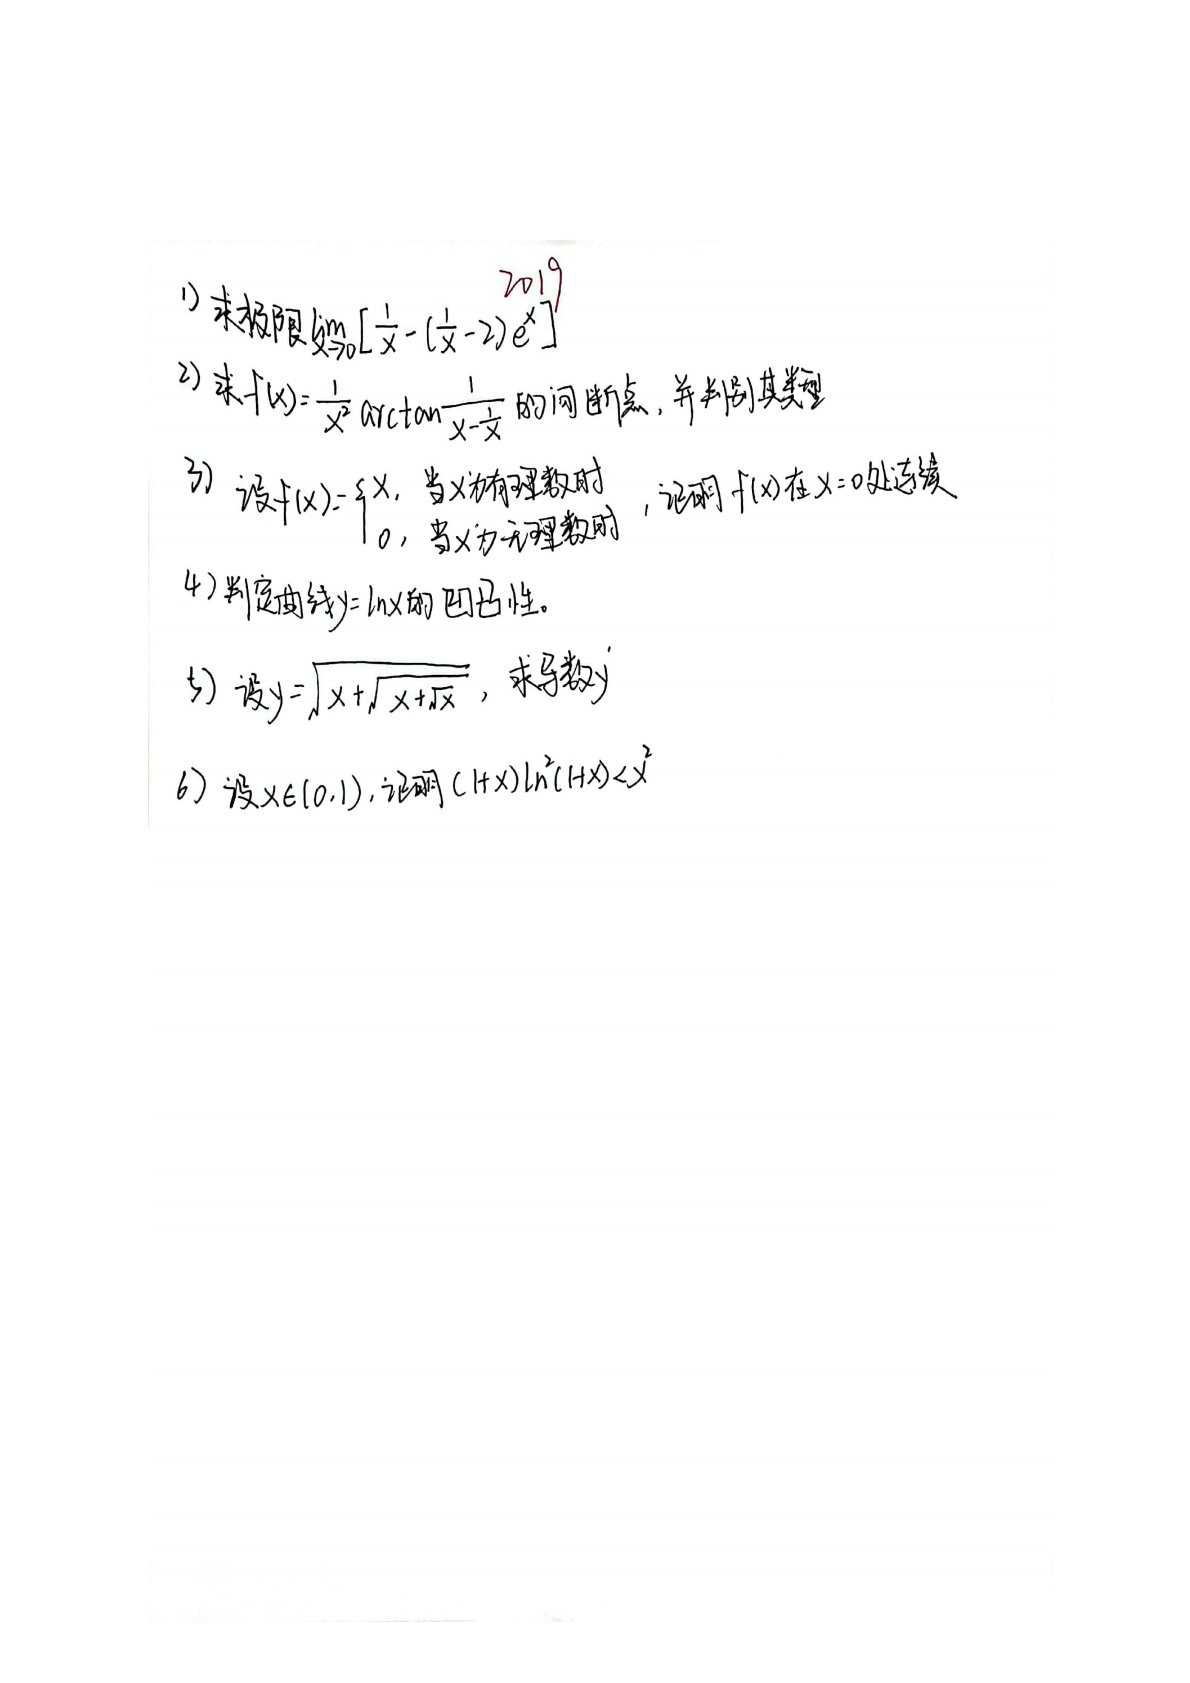 2019
1) 求极限 lim x→0 [1/x - (1/x - 2) e^x]
2) 求 f(x) = 1/x² arctan 1/(x - 1/x) 的间断点, 并判别其类型
3) 设 f(x) = { x, 当x为有理数时
0, 当x为无理数时 , 证明 f(x) 在 x=0 处连续
4) 判定曲线 y = lnx 的凹凸性。
5) 设 y = √(x + √(x + √x)) , 求导数 y'
6) 设 x∈(0,1), 证明 (1+x) ln²(1+x) < x²